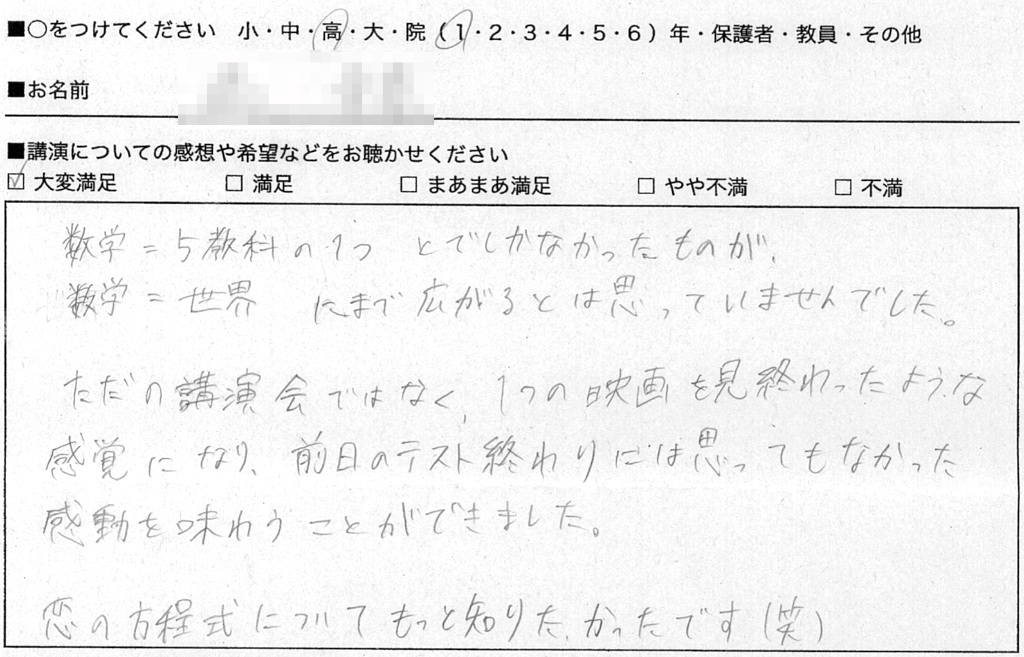 ■○をつけてください　小・中・高・大・院（1・2・3・4・5・6）年・保護者・教員・その他
■お名前
■講演についての感想や希望などをお聴かせください
☑ 大変満足　□ 満足　□ まあまあ満足　□ やや不満　□ 不満
数学＝5教科の1つ　とでしかなかったものが、
数学＝世界　にまで広がるとは思っていませんでした。
ただの講演会ではなく、1つの映画を見終わったような
感覚になり、前日のテスト終わりには思ってもなかった
感動を味わうことができました。
恋の方程式についてもっと知りたかったです（笑）